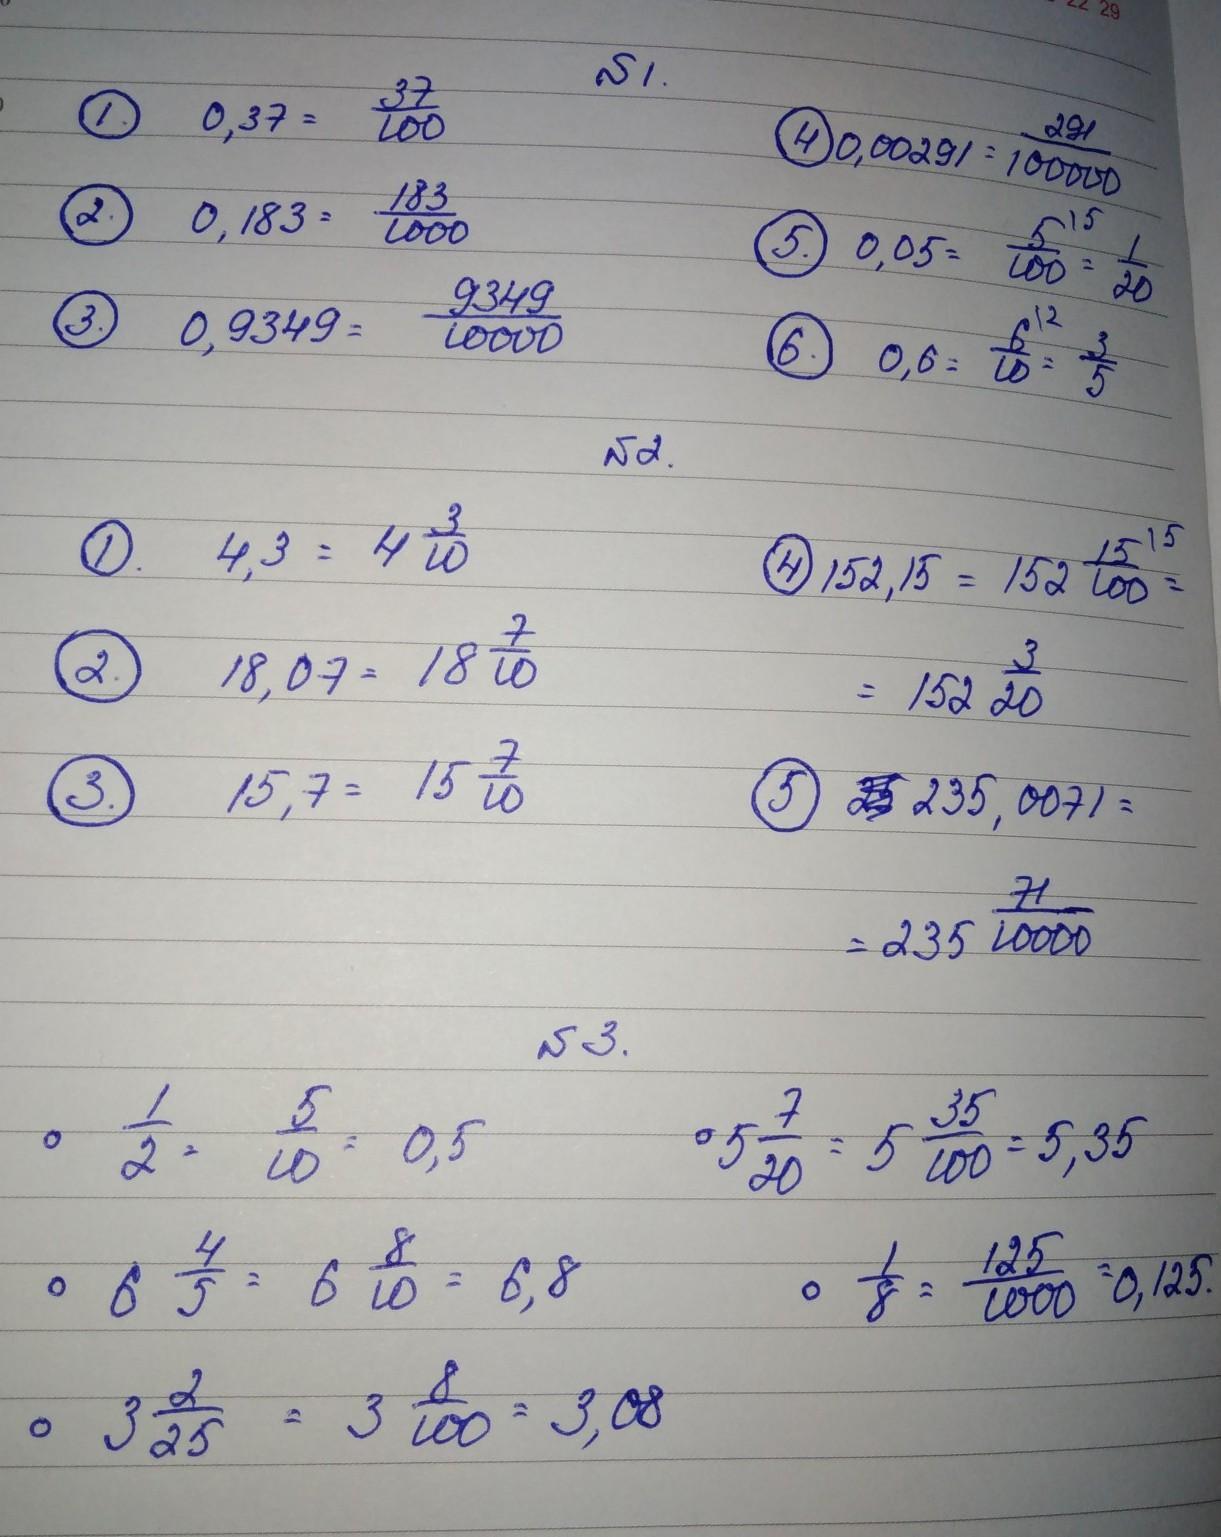 22 29
№1.
1. 0,37 = 37/100
2. 0,183 = 183/1000
3. 0,9349 = 9349/10000
4 0,00291 = 291/100000
5. 0,05 = 5/100 \5 = 1/20
6. 0,6 = 6/10 \2 = 3/5
№2.
1. 4,3 = 4 3/10
2. 18,07 = 18 7/10
3. 15,7 = 15 7/10
4 152,15 = 152 15/100 \5 =
= 152 3/20
5 235,0071 =
= 235 71/10000
№3.
° 1/2 = 5/10 = 0,5
° 6 4/5 = 6 8/10 = 6,8
° 3 2/25 = 3 8/100 = 3,08
° 5 7/20 = 5 35/100 = 5,35
° 1/8 = 125/1000 = 0,125.